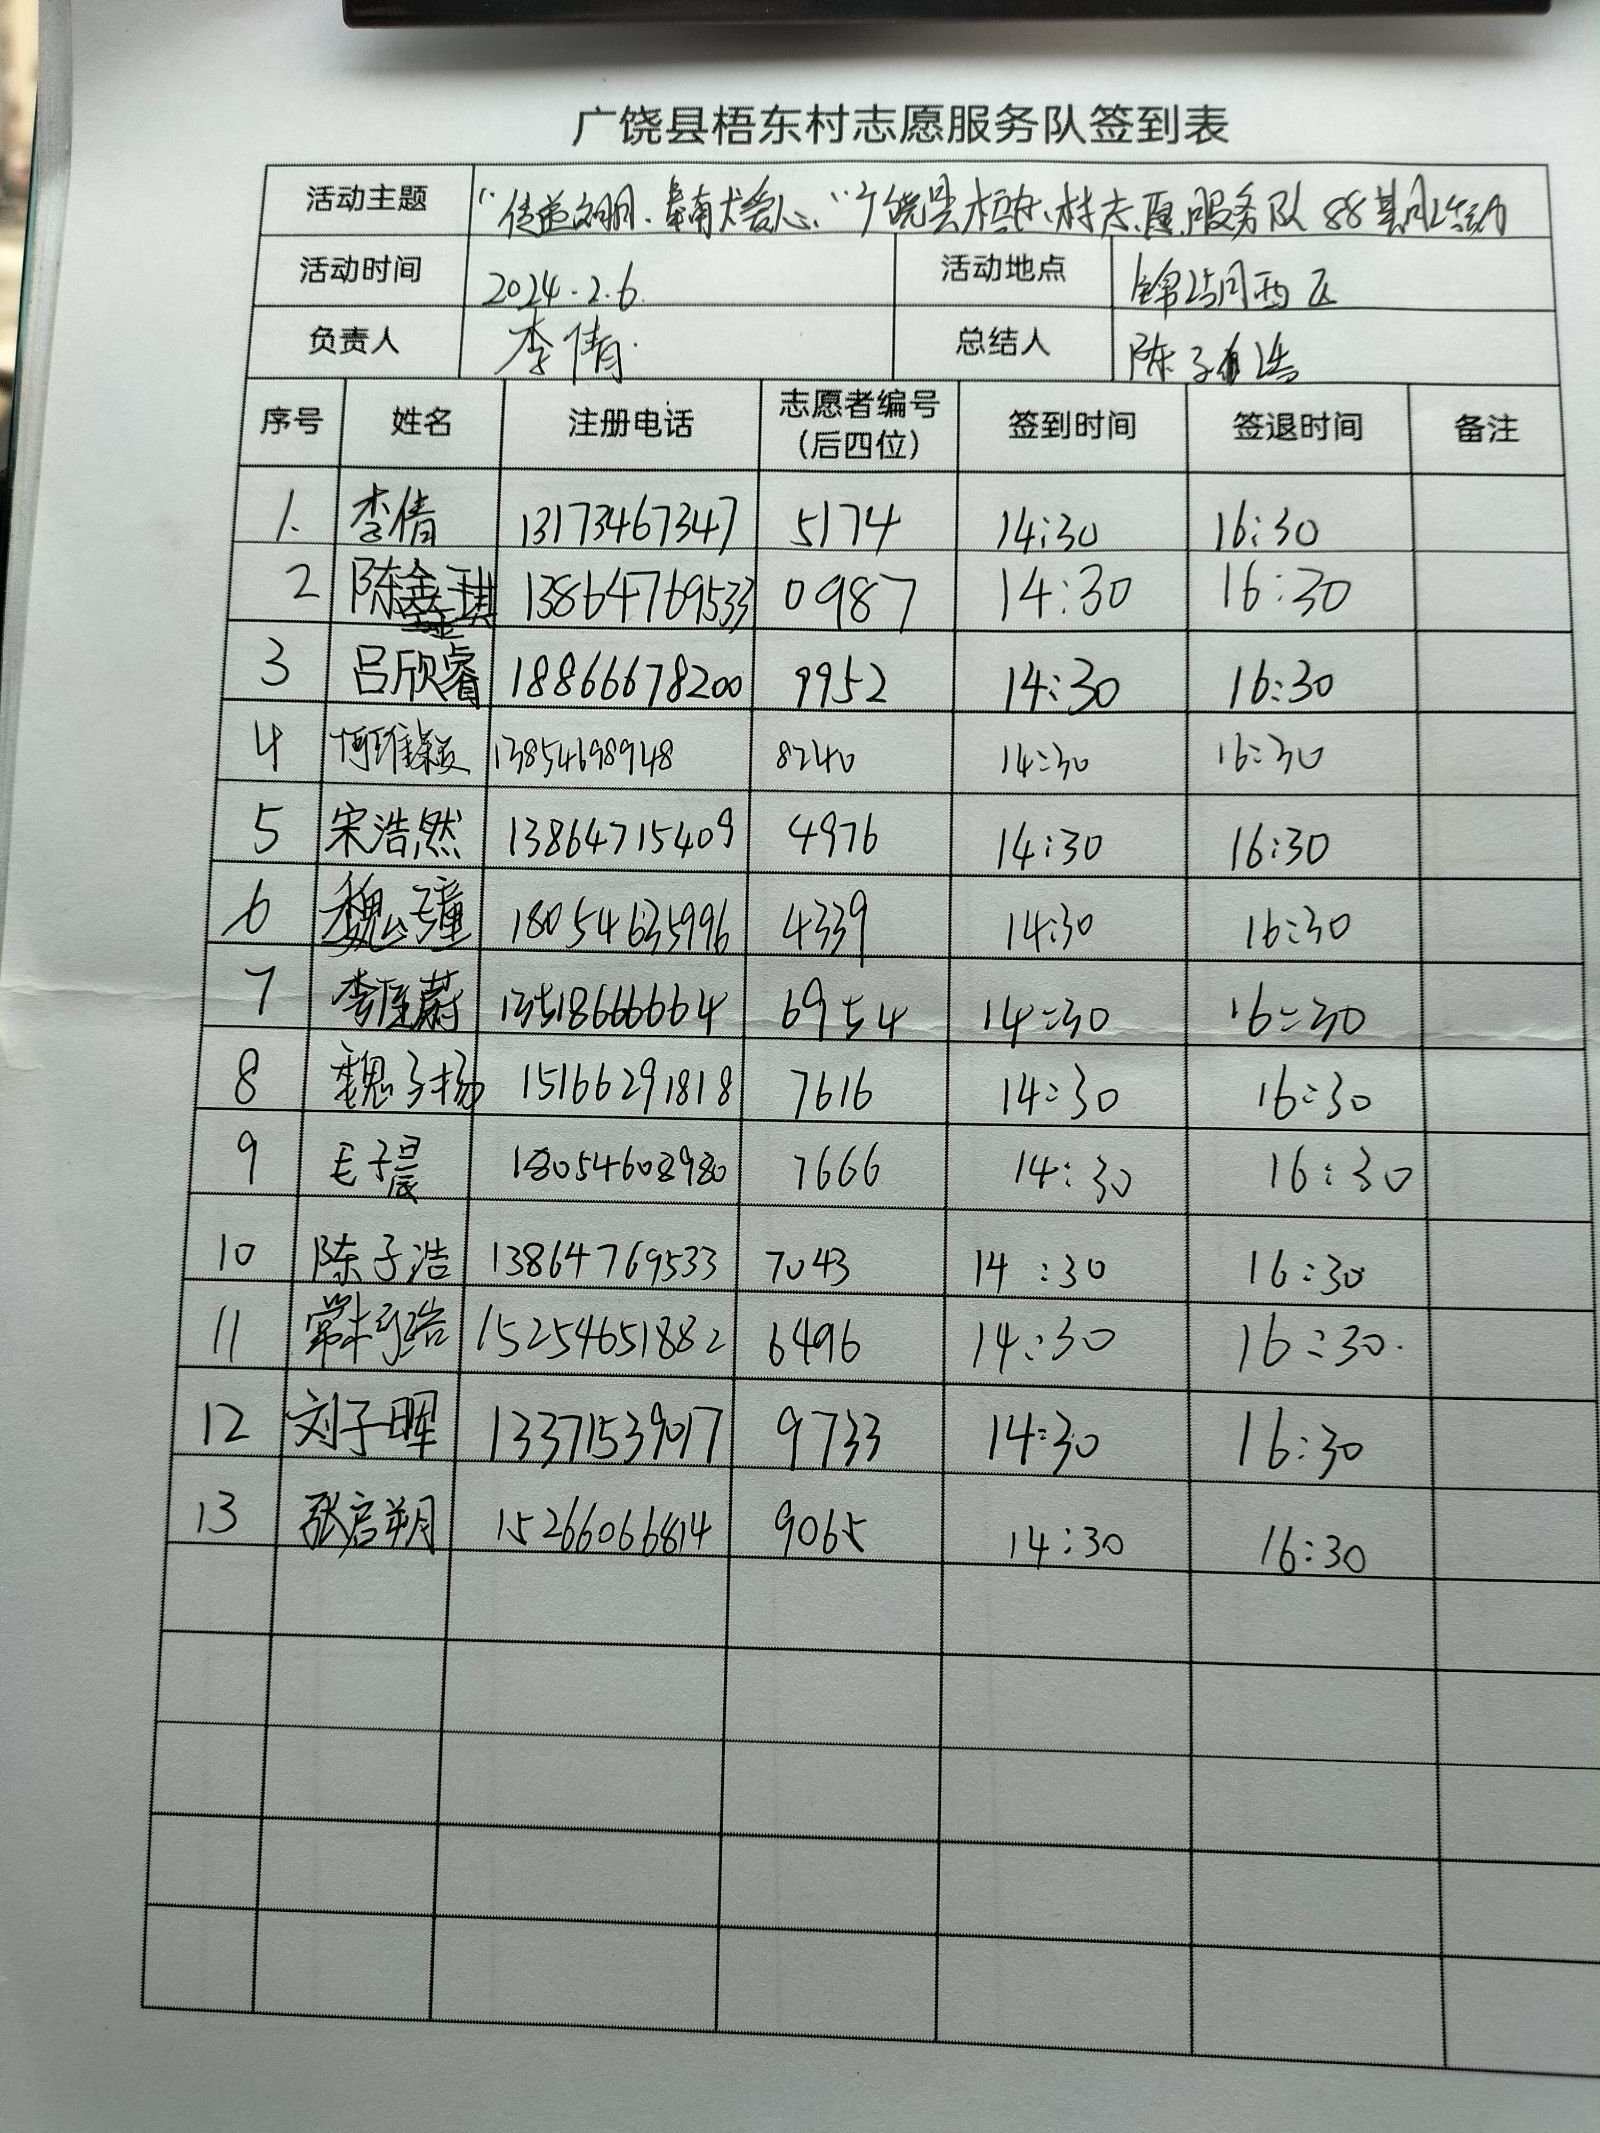 广饶县梧东村志愿服务队签到表
活动主题 "传递文明、奉献大爱心、"广饶县梧东村志愿服务队88期活动
活动时间 2024.2.6 活动地点 锦湖西区
负责人 李倩 总结人 陈子浩
序号 姓名 注册电话 志愿者编号(后四位) 签到时间 签退时间 备注
1. 李倩 13173467347 5174 14:30 16:30
2 陈鑫琪 13864769533 0987 14:30 16:30
3 吕欣睿 18866678200 9952 14:30 16:30
4 13854698948 8240 14:30 16:30
5 宋浩然 13864715409 4976 14:30 16:30
6 魏子瞳 18054635996 4339 14:30 16:30
7 13518666664 6954 14:30 16:30
8 魏子扬 15166291818 7616 14:30 16:30
9 毛子晨 18054608980 7666 14:30 16:30
10 陈子浩 13864769533 7043 14:30 16:30
11 15254651882 6496 14:30 16:30
12 刘子晖 13371539017 9733 14:30 16:30
13 张启朔 15266066814 9065 14:30 16:30